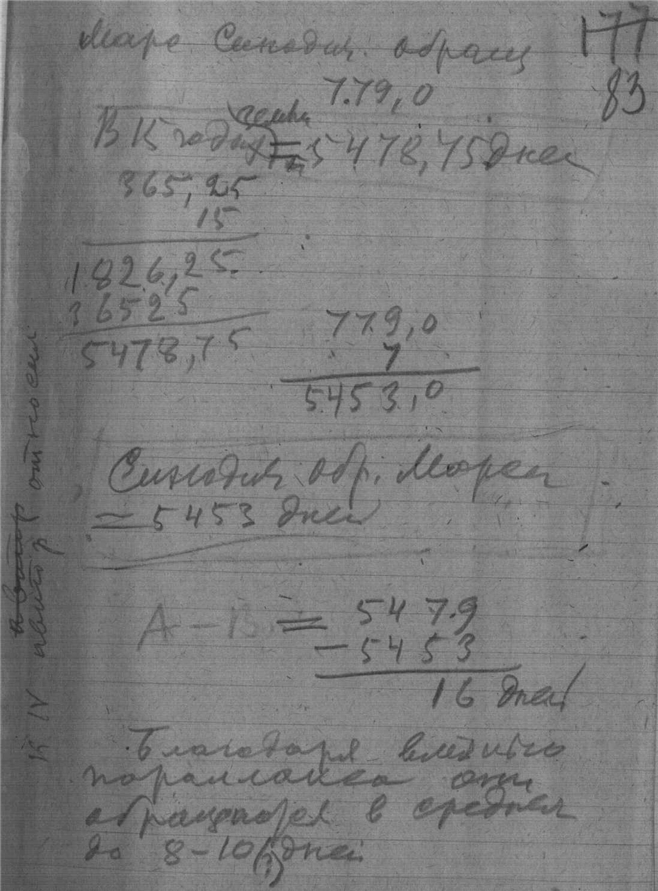 Марс Синодич. обращ
177
779,0
83
В 15 годах = 5478,75 дней
земн
365,25
15
1826,25
36525
5478,75
779,0
7
5453,0
Синодич. обр. Марса
= 5453 дней
A – B = 5479
– 5453
16 дней
Благодаря влиянию
параллакса они
обращаются в среднем
до 8–10(!) дней
к IV автор автор относил